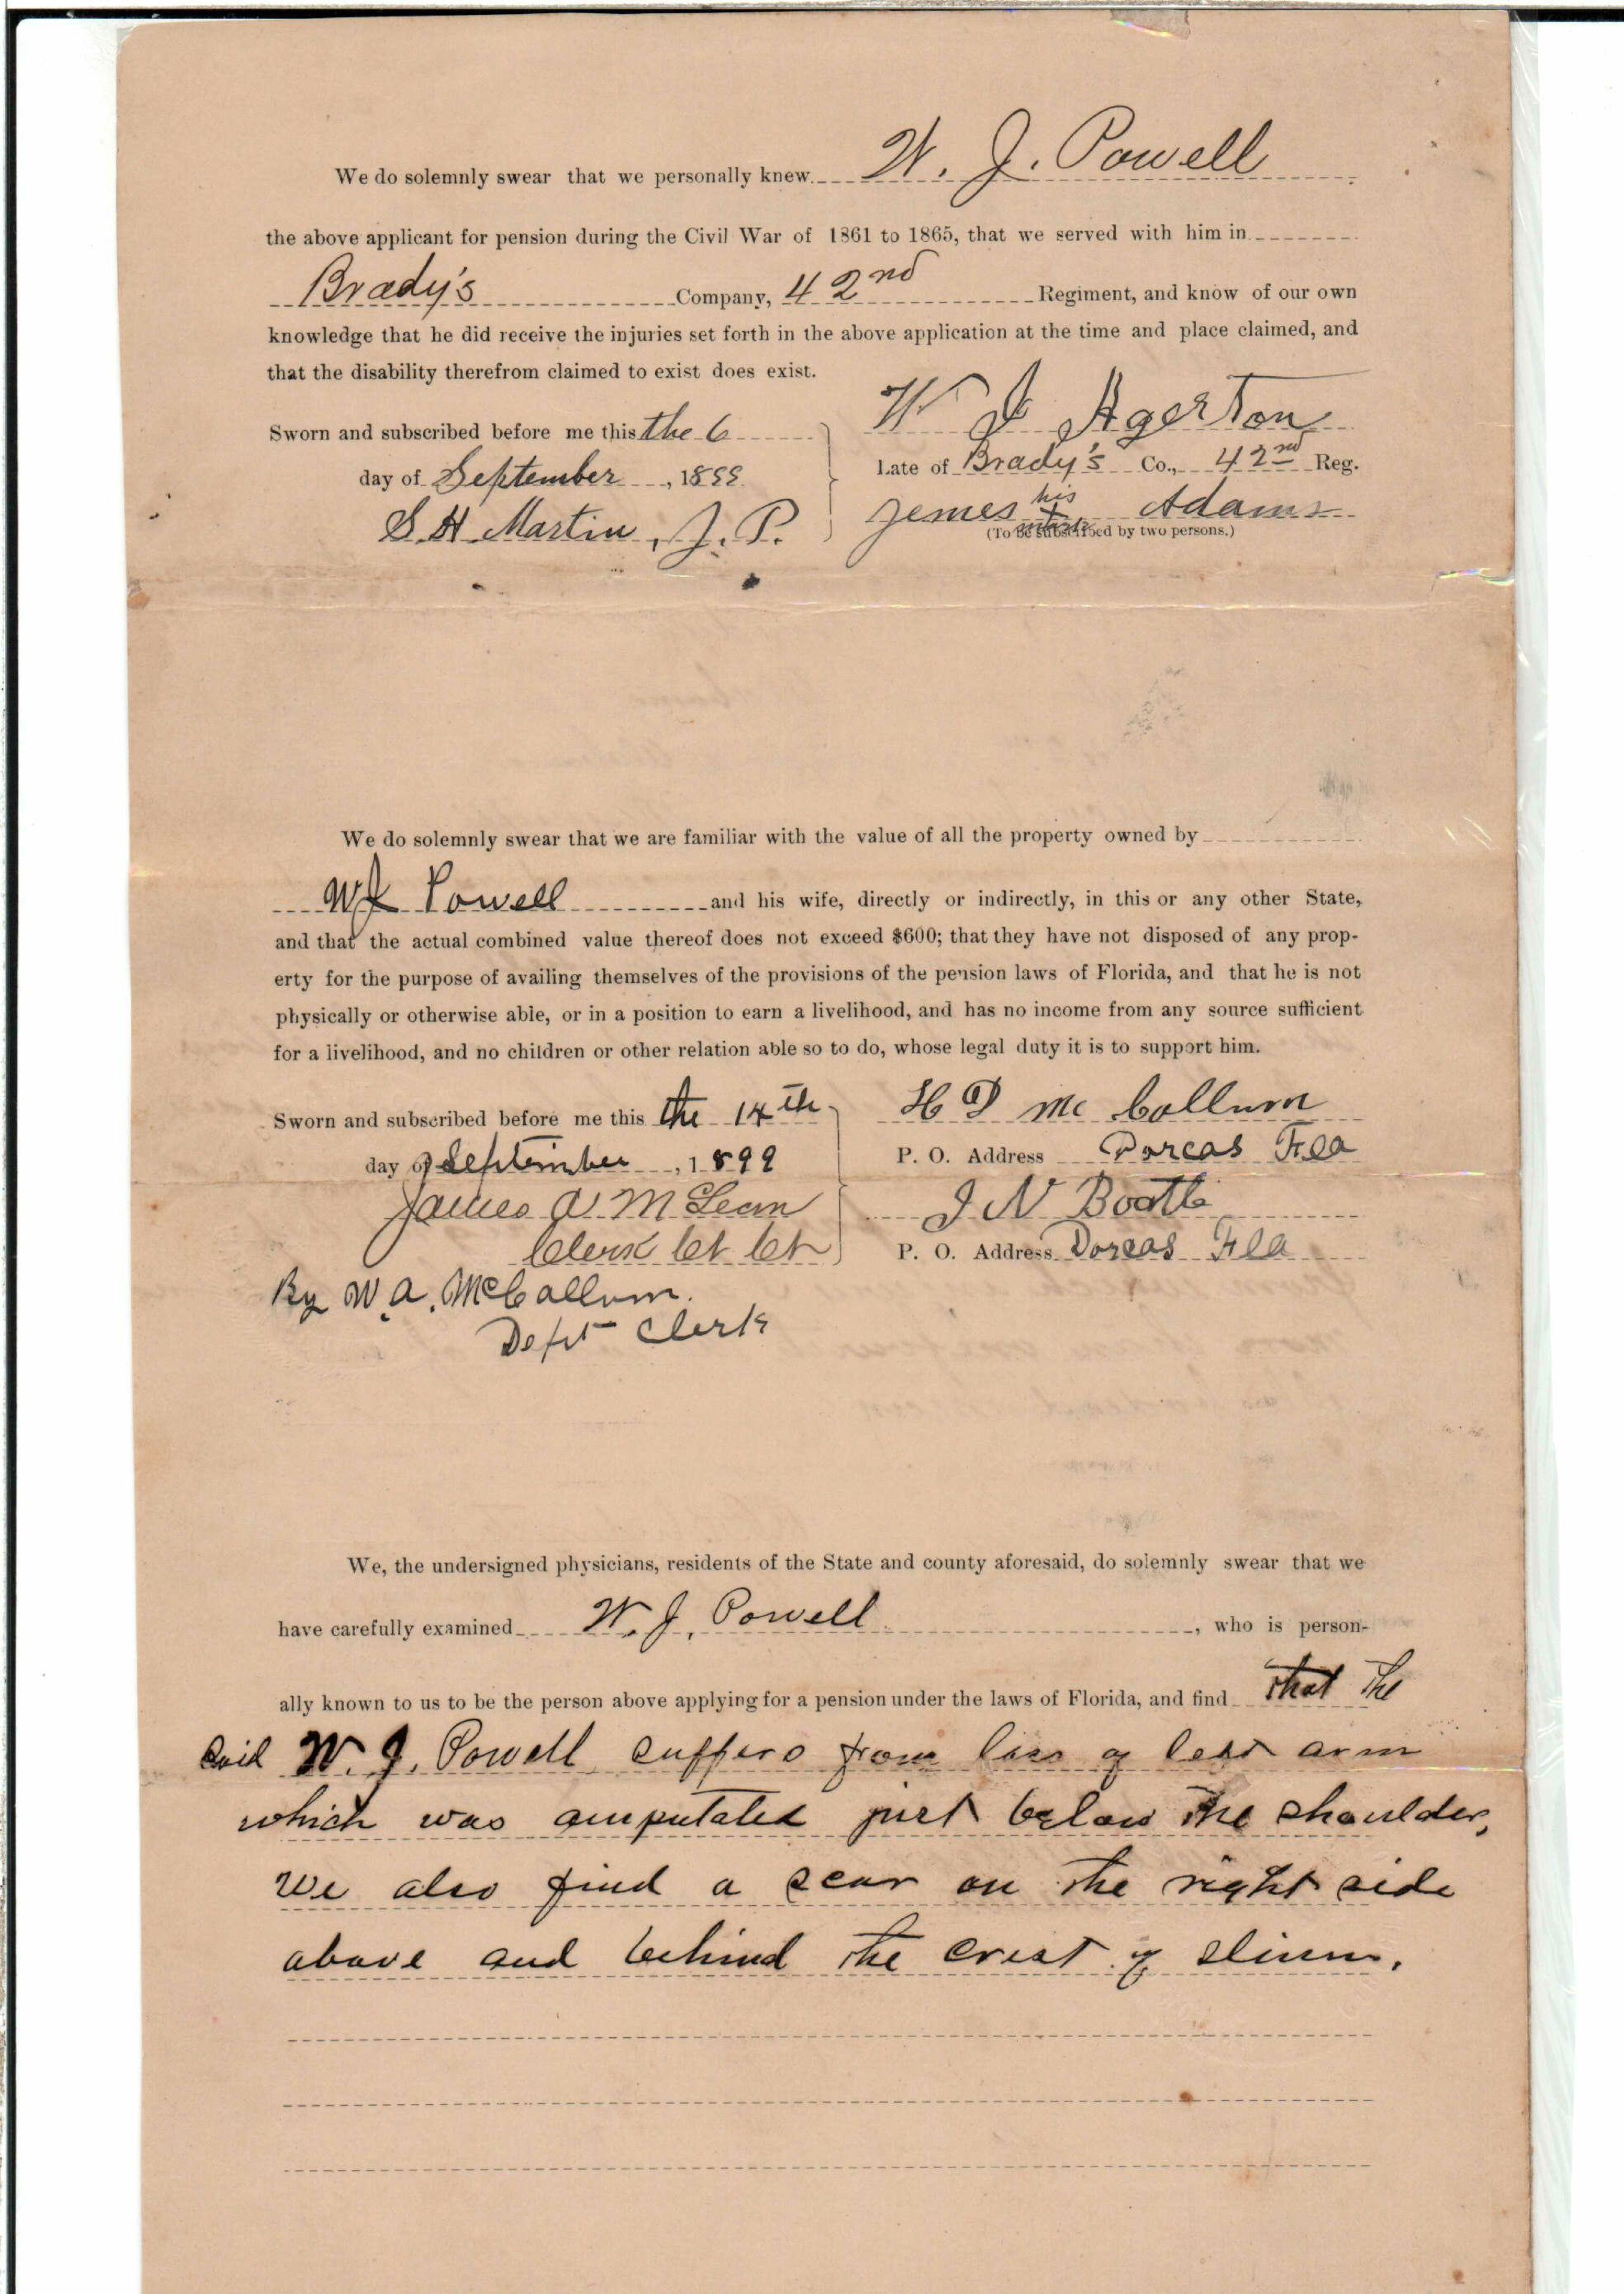 We do solemnly swear that we personally knew W. J. Powell
the above applicant for pension during the Civil War of 1861 to 1865, that we served with him in
Brady's Company, 42nd Regiment, and know of our own
knowledge that he did receive the injuries set forth in the above application at the time and place claimed, and
that the disability therefrom claimed to exist does exist.
W J Agerton
Sworn and subscribed before me this the 6
Late of Brady's Co., 42nd Reg.
day of September, 1899
James his x mark Adams
S. H. Martin, J. P.
(To be subscribed by two persons.)
We do solemnly swear that we are familiar with the value of all the property owned by
W J Powell and his wife, directly or indirectly, in this or any other State,
and that the actual combined value thereof does not exceed $600; that they have not disposed of any prop-
erty for the purpose of availing themselves of the provisions of the pension laws of Florida, and that he is not
physically or otherwise able, or in a position to earn a livelihood, and has no income from any source sufficient
for a livelihood, and no children or other relation able so to do, whose legal duty it is to support him.
Sworn and subscribed before me this the 14th
H D McCollum
day of September, 1899
P. O. Address Dorcas Fla
James A McLean
J N
Clerk Ct Ct
P. O. Address Dorcas Fla
By W. A. McCallum.
Dept Clerk
We, the undersigned physicians, residents of the State and county aforesaid, do solemnly swear that we
have carefully examined W. J. Powell, who is person-
ally known to us to be the person above applying for a pension under the laws of Florida, and find that the
said W. J. Powell suffers from loss of left arm
which was amputated just below the shoulder,
we also find a scar on the right side
above and behind the crest of